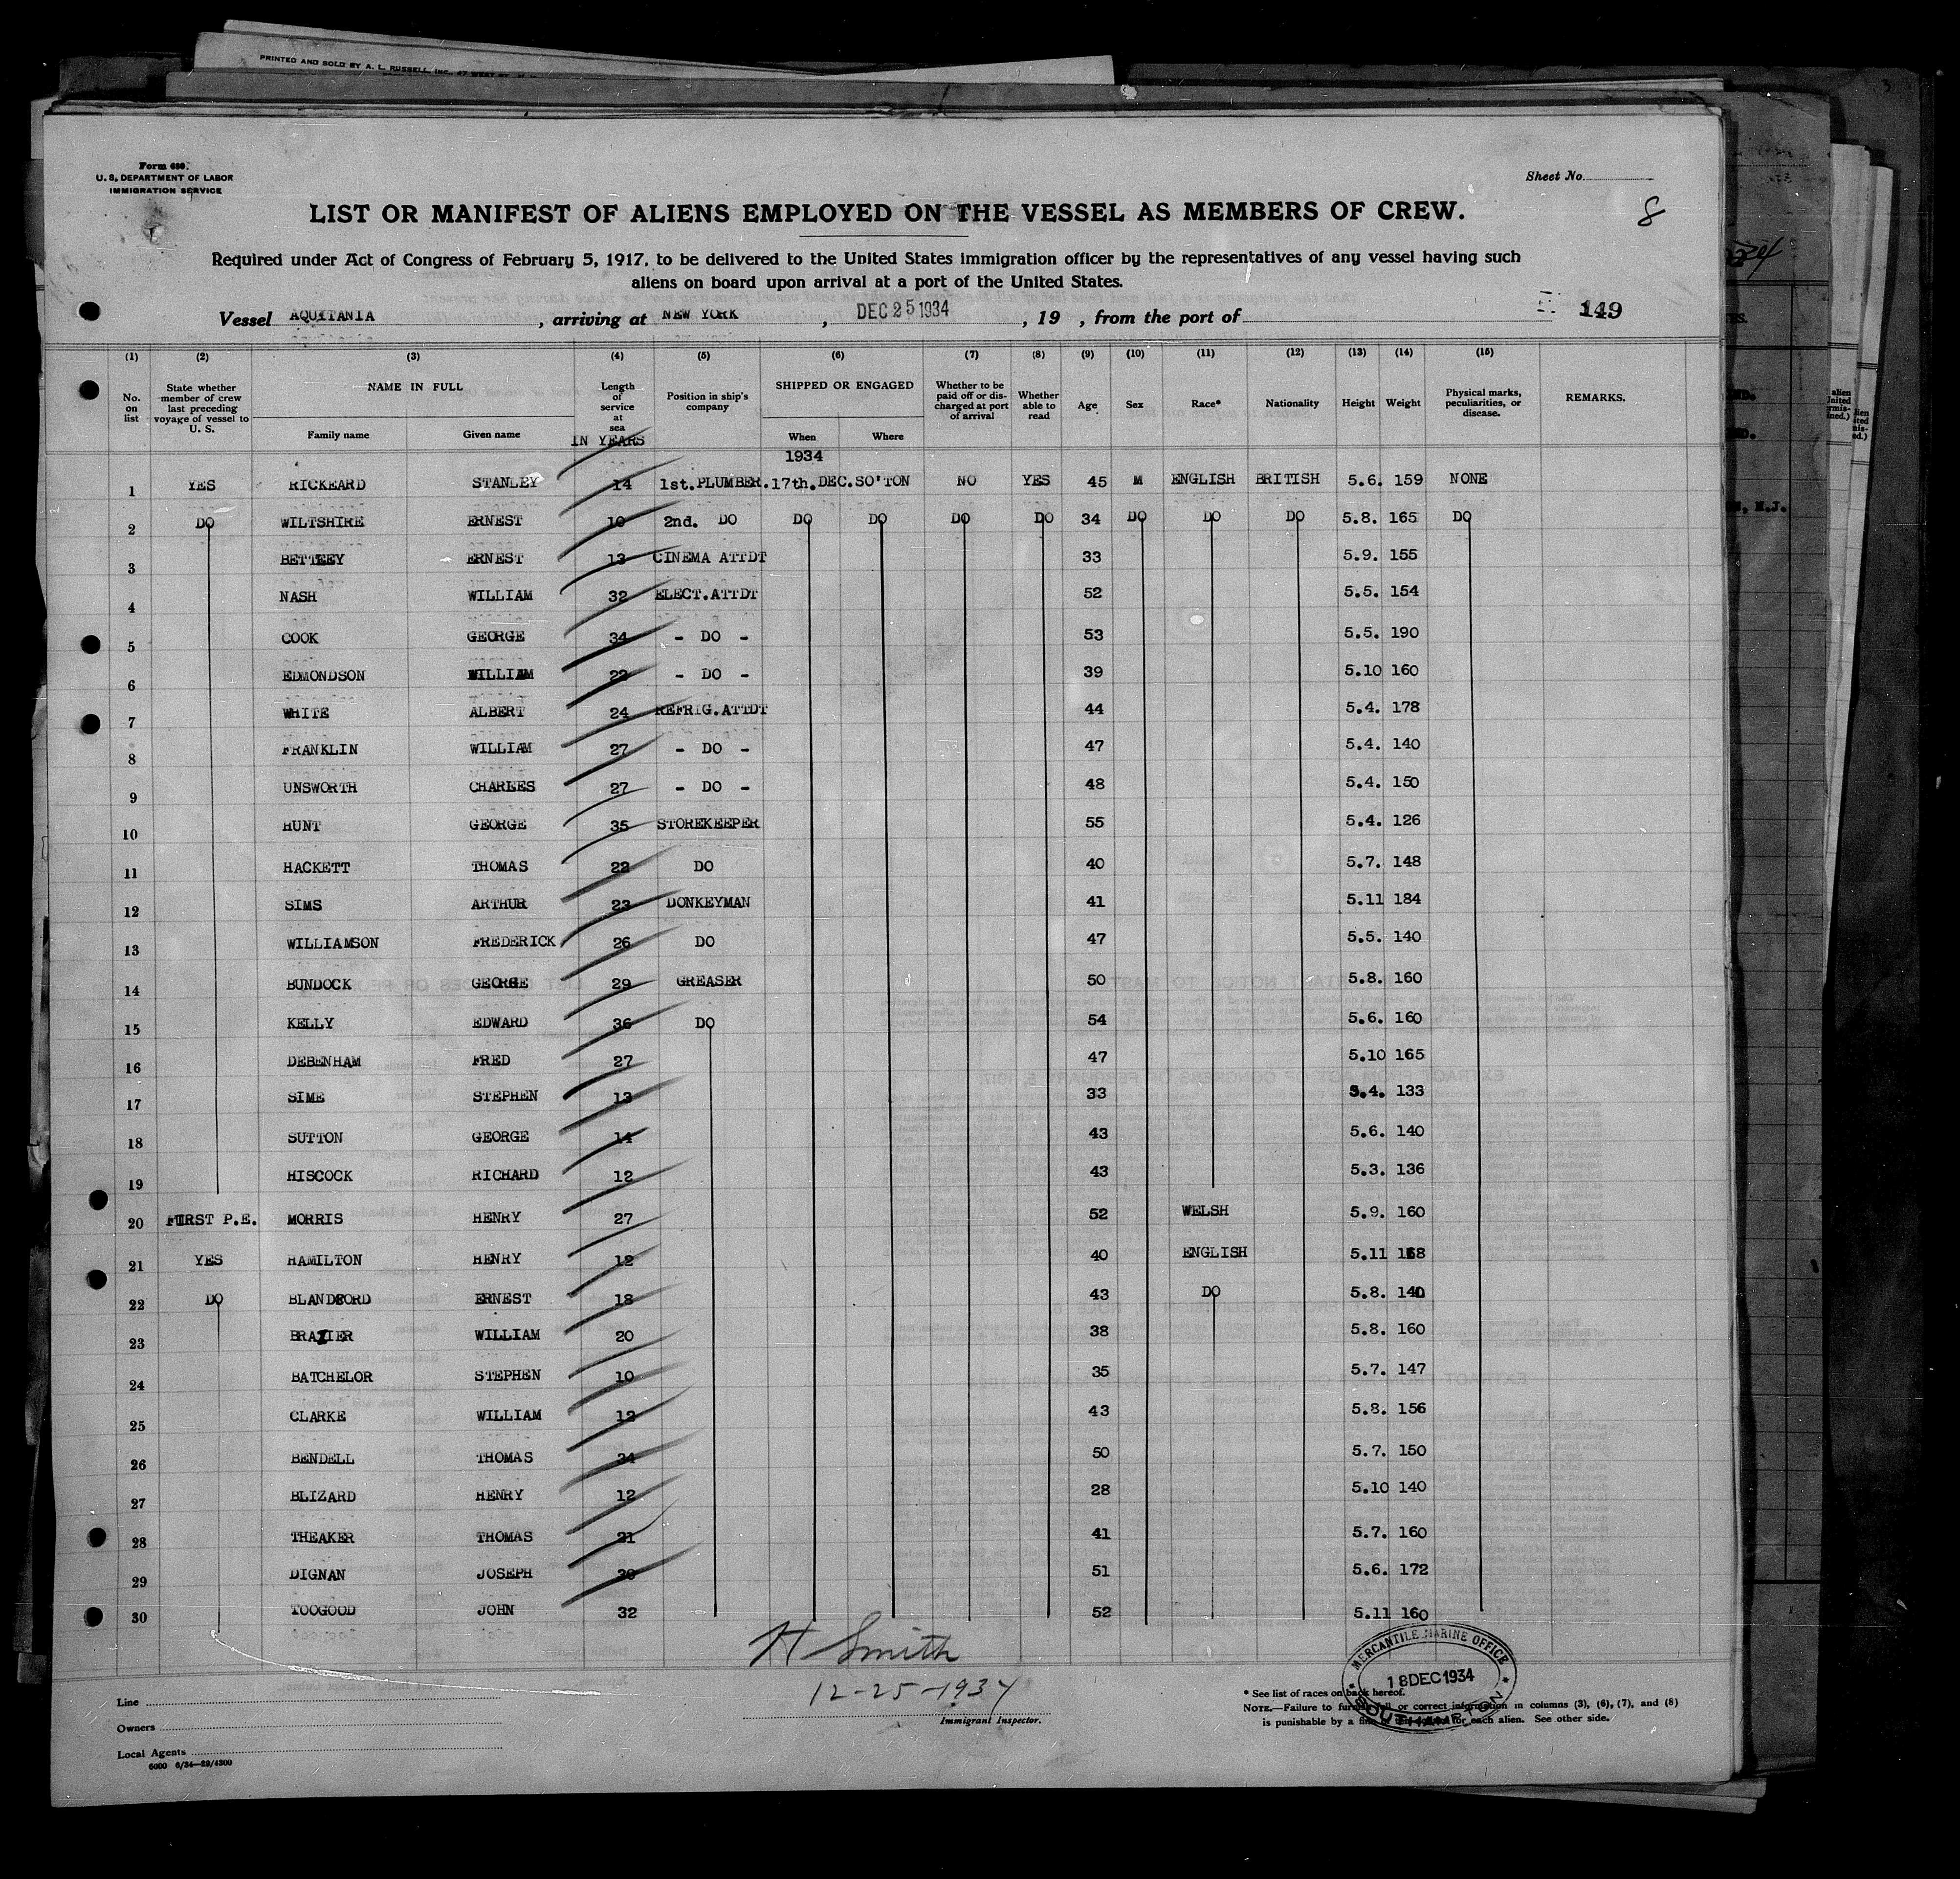 PRINTED AND SOLD BY A. L. RUSSELL, INC., 47 WEST ST.
Form 680.
U. S. DEPARTMENT OF LABOR
IMMIGRATION SERVICE
Sheet No.
8
LIST OR MANIFEST OF ALIENS EMPLOYED ON THE VESSEL AS MEMBERS OF CREW.
Required under Act of Congress of February 5, 1917, to be delivered to the United States immigration officer by the representatives of any vessel having such
aliens on board upon arrival at a port of the United States.
Vessel AQUITANIA, arriving at NEW YORK, DEC 25 1934, 19 , from the port of 149
(1) (2) (3) (4) (5) (6) (7) (8) (9) (10) (11) (12) (13) (14) (15)
No. on list State whether member of crew last preceding voyage of vessel to U. S. NAME IN FULL Family name Given name Length of service at sea IN YEARS Position in ship's company SHIPPED OR ENGAGED When Where Whether to be paid off or discharged at port of arrival Whether able to read Age Sex Race* Nationality Height Weight Physical marks, peculiarities, or disease. REMARKS.
1934
1 YES RICKEARD STANLEY 14 1st. PLUMBER. 17th. DEC. SO'TON NO YES 45 M ENGLISH BRITISH 5.6. 159 NONE
2 DO WILTSHIRE ERNEST 10 2nd. DO DO DO DO DO 34 DO DO DO 5.8. 165 DO
3 BETTEEY ERNEST 13 CINEMA ATTDT 33 5.9. 155
4 NASH WILLIAM 32 ELECT.ATTDT 52 5.5. 154
5 COOK GEORGE 34 - DO - 53 5.5. 190
6 EDMONDSON WILLIAM 22 - DO - 39 5.10 160
7 WHITE ALBERT 24 REFRIG.ATTDT 44 5.4. 178
8 FRANKLIN WILLIAM 27 - DO - 47 5.4. 140
9 UNSWORTH CHARLES 27 - DO - 48 5.4. 150
10 HUNT GEORGE 35 STOREKEEPER 55 5.4. 126
11 HACKETT THOMAS 22 DO 40 5.7. 148
12 SIMS ARTHUR 23 DONKEYMAN 41 5.11 184
13 WILLIAMSON FREDERICK 26 DO 47 5.5. 140
14 BUNDOCK GEORGE 29 GREASER 50 5.8. 160
15 KELLY EDWARD 36 DO 54 5.6. 160
16 DEBENHAM FRED 27 47 5.10 165
17 SIME STEPHEN 13 33 5.4. 133
18 SUTTON GEORGE 14 43 5.6. 140
19 HISCOCK RICHARD 12 43 5.3. 136
20 FIRST P.E. MORRIS HENRY 27 52 WELSH 5.9. 160
21 YES HAMILTON HENRY 12 40 ENGLISH 5.11 168
22 DO BLANDFORD ERNEST 18 43 DO 5.8. 140
23 BRAZIER WILLIAM 20 38 5.8. 160
24 BATCHELOR STEPHEN 10 35 5.7. 147
25 CLARKE WILLIAM 12 43 5.8. 156
26 BENDELL THOMAS 34 50 5.7. 150
27 BLIZARD HENRY 12 28 5.10 140
28 THEAKER THOMAS 21 41 5.7. 160
29 DIGNAN JOSEPH 30 51 5.6. 172
30 TOOGOOD JOHN 32 52 5.11 160
H Smith
12-25-1934
Immigrant Inspector.
MERCANTILE MARINE OFFICE
18 DEC 1934
SOUTHAMPTON
Line
Owners
Local Agents
6000 6/34—29/4300
* See list of races on back hereof.
NOTE.—Failure to furnish full or correct information in columns (3), (6), (7), and (8)
is punishable by a fine for each alien. See other side.